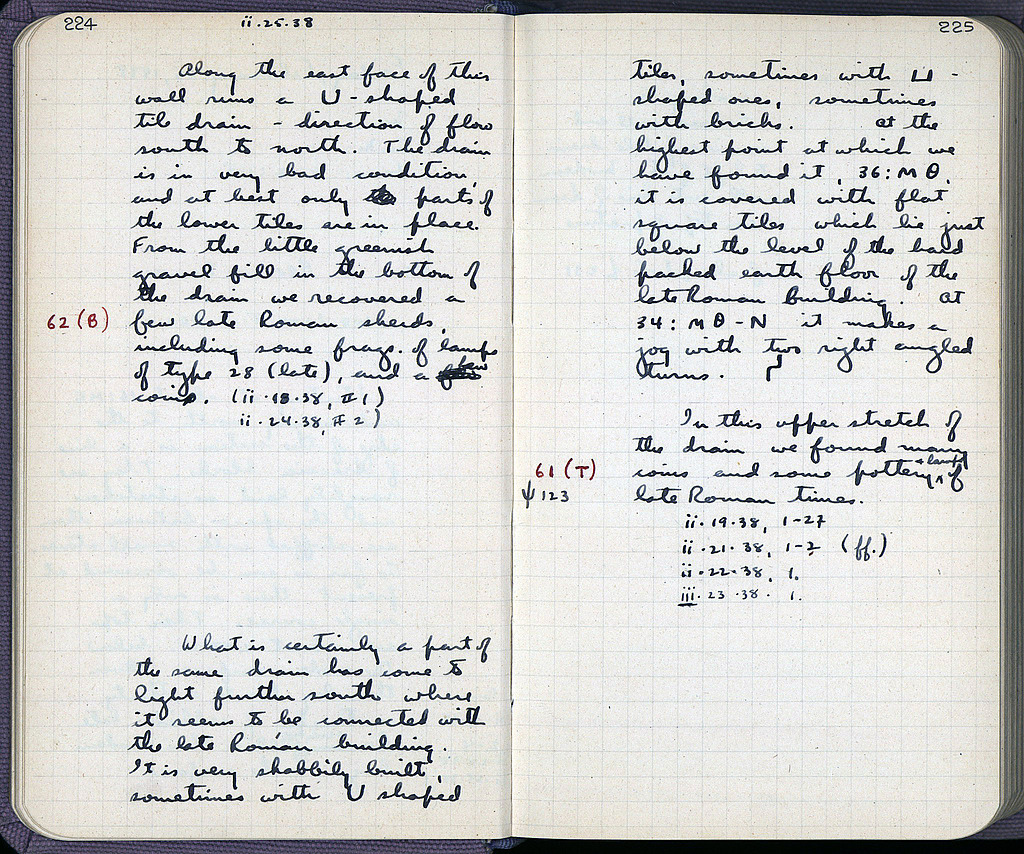 224
ii.25.38
Along the east face of this
wall runs a U-shaped
tile drain - direction of flow
south to north. The drain
is in very bad condition,
and at best only parts of
the lower tiles are in place.
From the little greenish
gravel fill in the bottom of
the drain we recovered a
62 (B) few late Roman sherds,
including some frags. of lamps
of type 28 (late), and a few
coins. (ii.18.38, #1)
ii.24.38, #2)
What is certainly a part of
the same drain has come to
light further south where
it seems to be connected with
the late Roman building.
It is very shabbily built,
sometimes with U shaped
225
tiles, sometimes with U-
shaped ones, sometimes
with bricks. At the
highest point at which we
have found it, 36:ΜΘ,
it is covered with flat
square tiles which lie just
below the level of the hard
packed earth floor of the
late Roman building. At
34:ΜΘ-Ν it makes a
jog with two right angled
turns.
In this upper stretch of
the drain we found many
61 (T) coins and some pottery + lamps of
ψ 123 late Roman times.
ii.19.38, 1-27
ii.21.38, 1-2 (ff.)
ii.22.38, 1.
iii.23.38. 1.